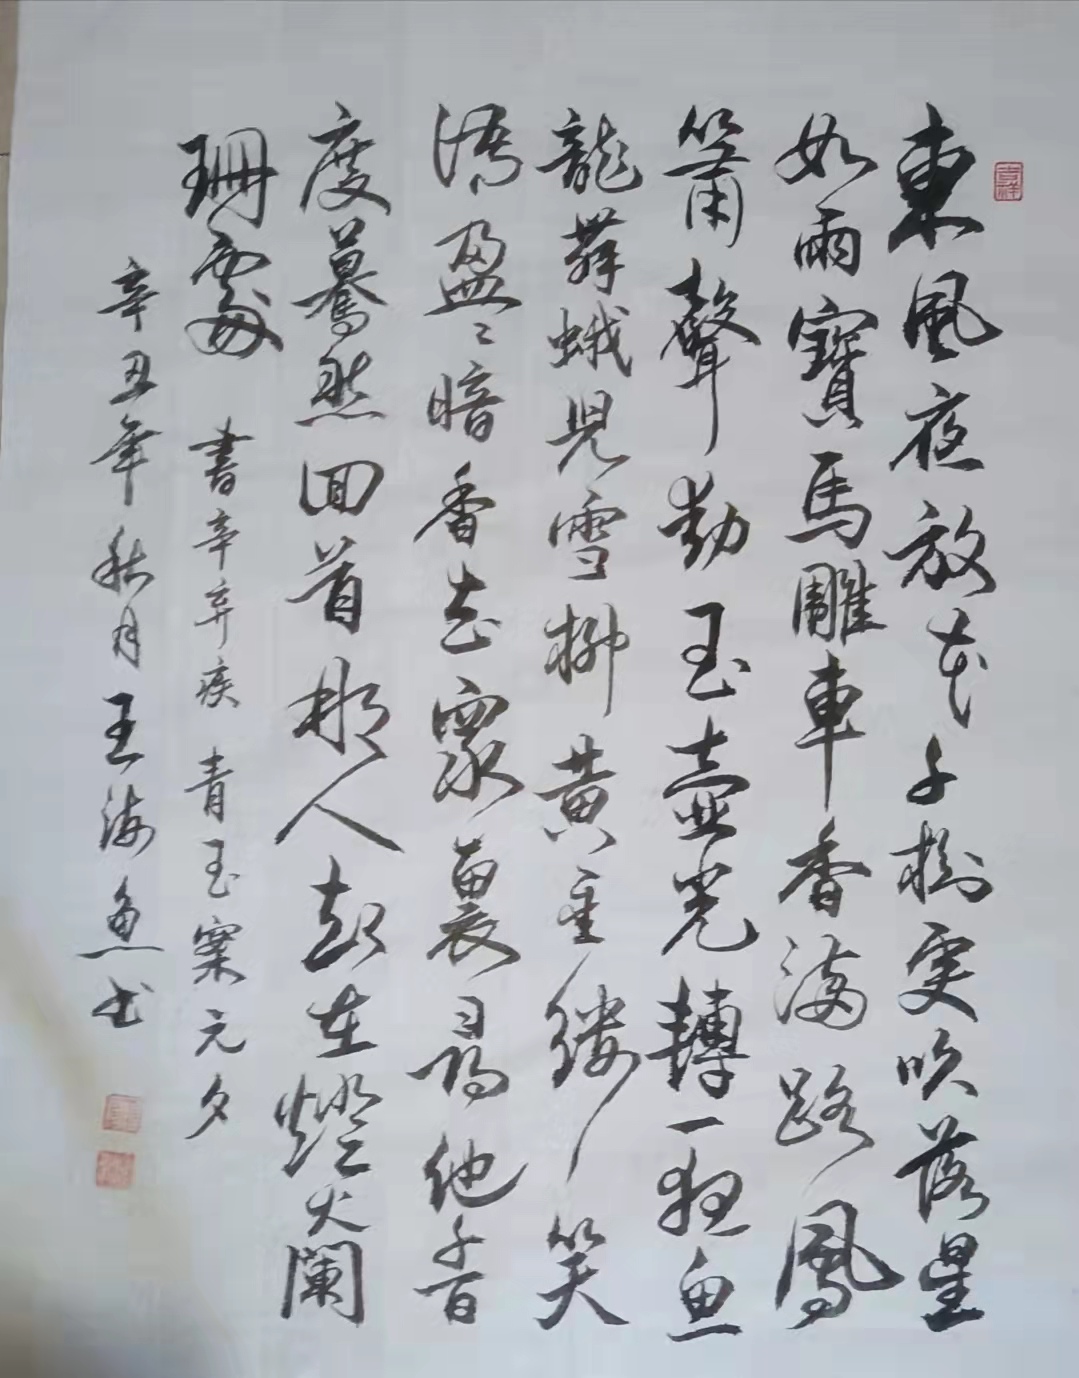 東風夜放花千樹更吹落星
如雨寶馬雕車香滿路鳳
簫聲動玉壺光轉一夜魚
龍舞蛾兒雪柳黃金縷笑
語盈盈暗香去眾裏尋他千百
度驀然回首那人却在燈火闌
珊處 書辛弃疾青玉案元夕
辛丑年秋月王海魚书
吉祥